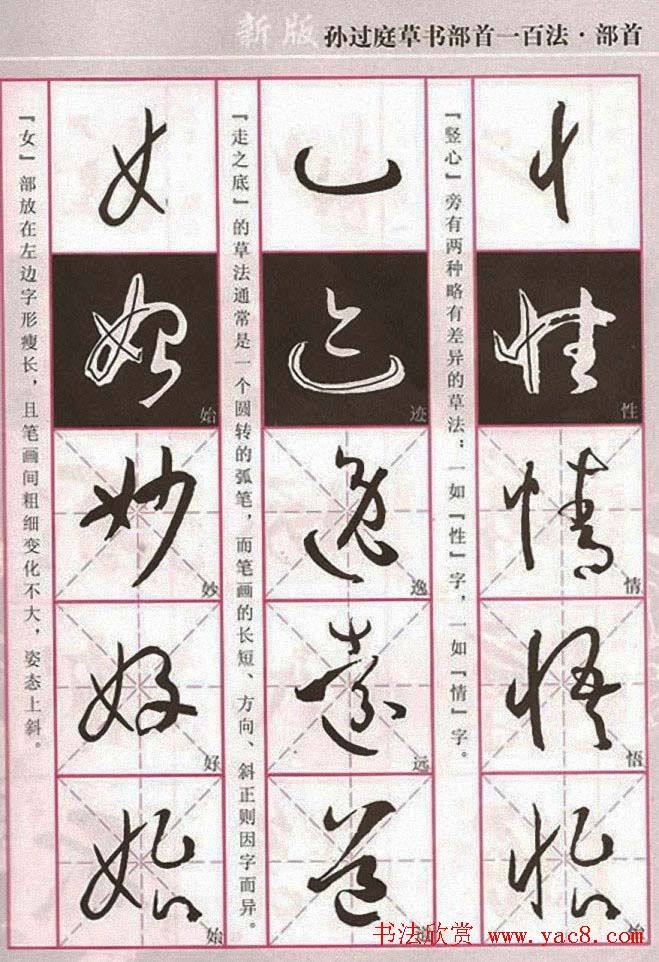 新版 孙过庭草书部首一百法·部首
『竖心』旁有两种略有差异的草法：一如『性』字，一如『情』字。
忄
性
情
悟
『走之底』的草法通常是一个圆转的弧笔，而笔画的长短、方向、斜正则因字而异。
辶
迹
逸
远
道
『女』部放在左边字形瘦长，且笔画间粗细变化不大，姿态上斜。
女
始
妙
好
始
书法欣赏 www.yac8.com